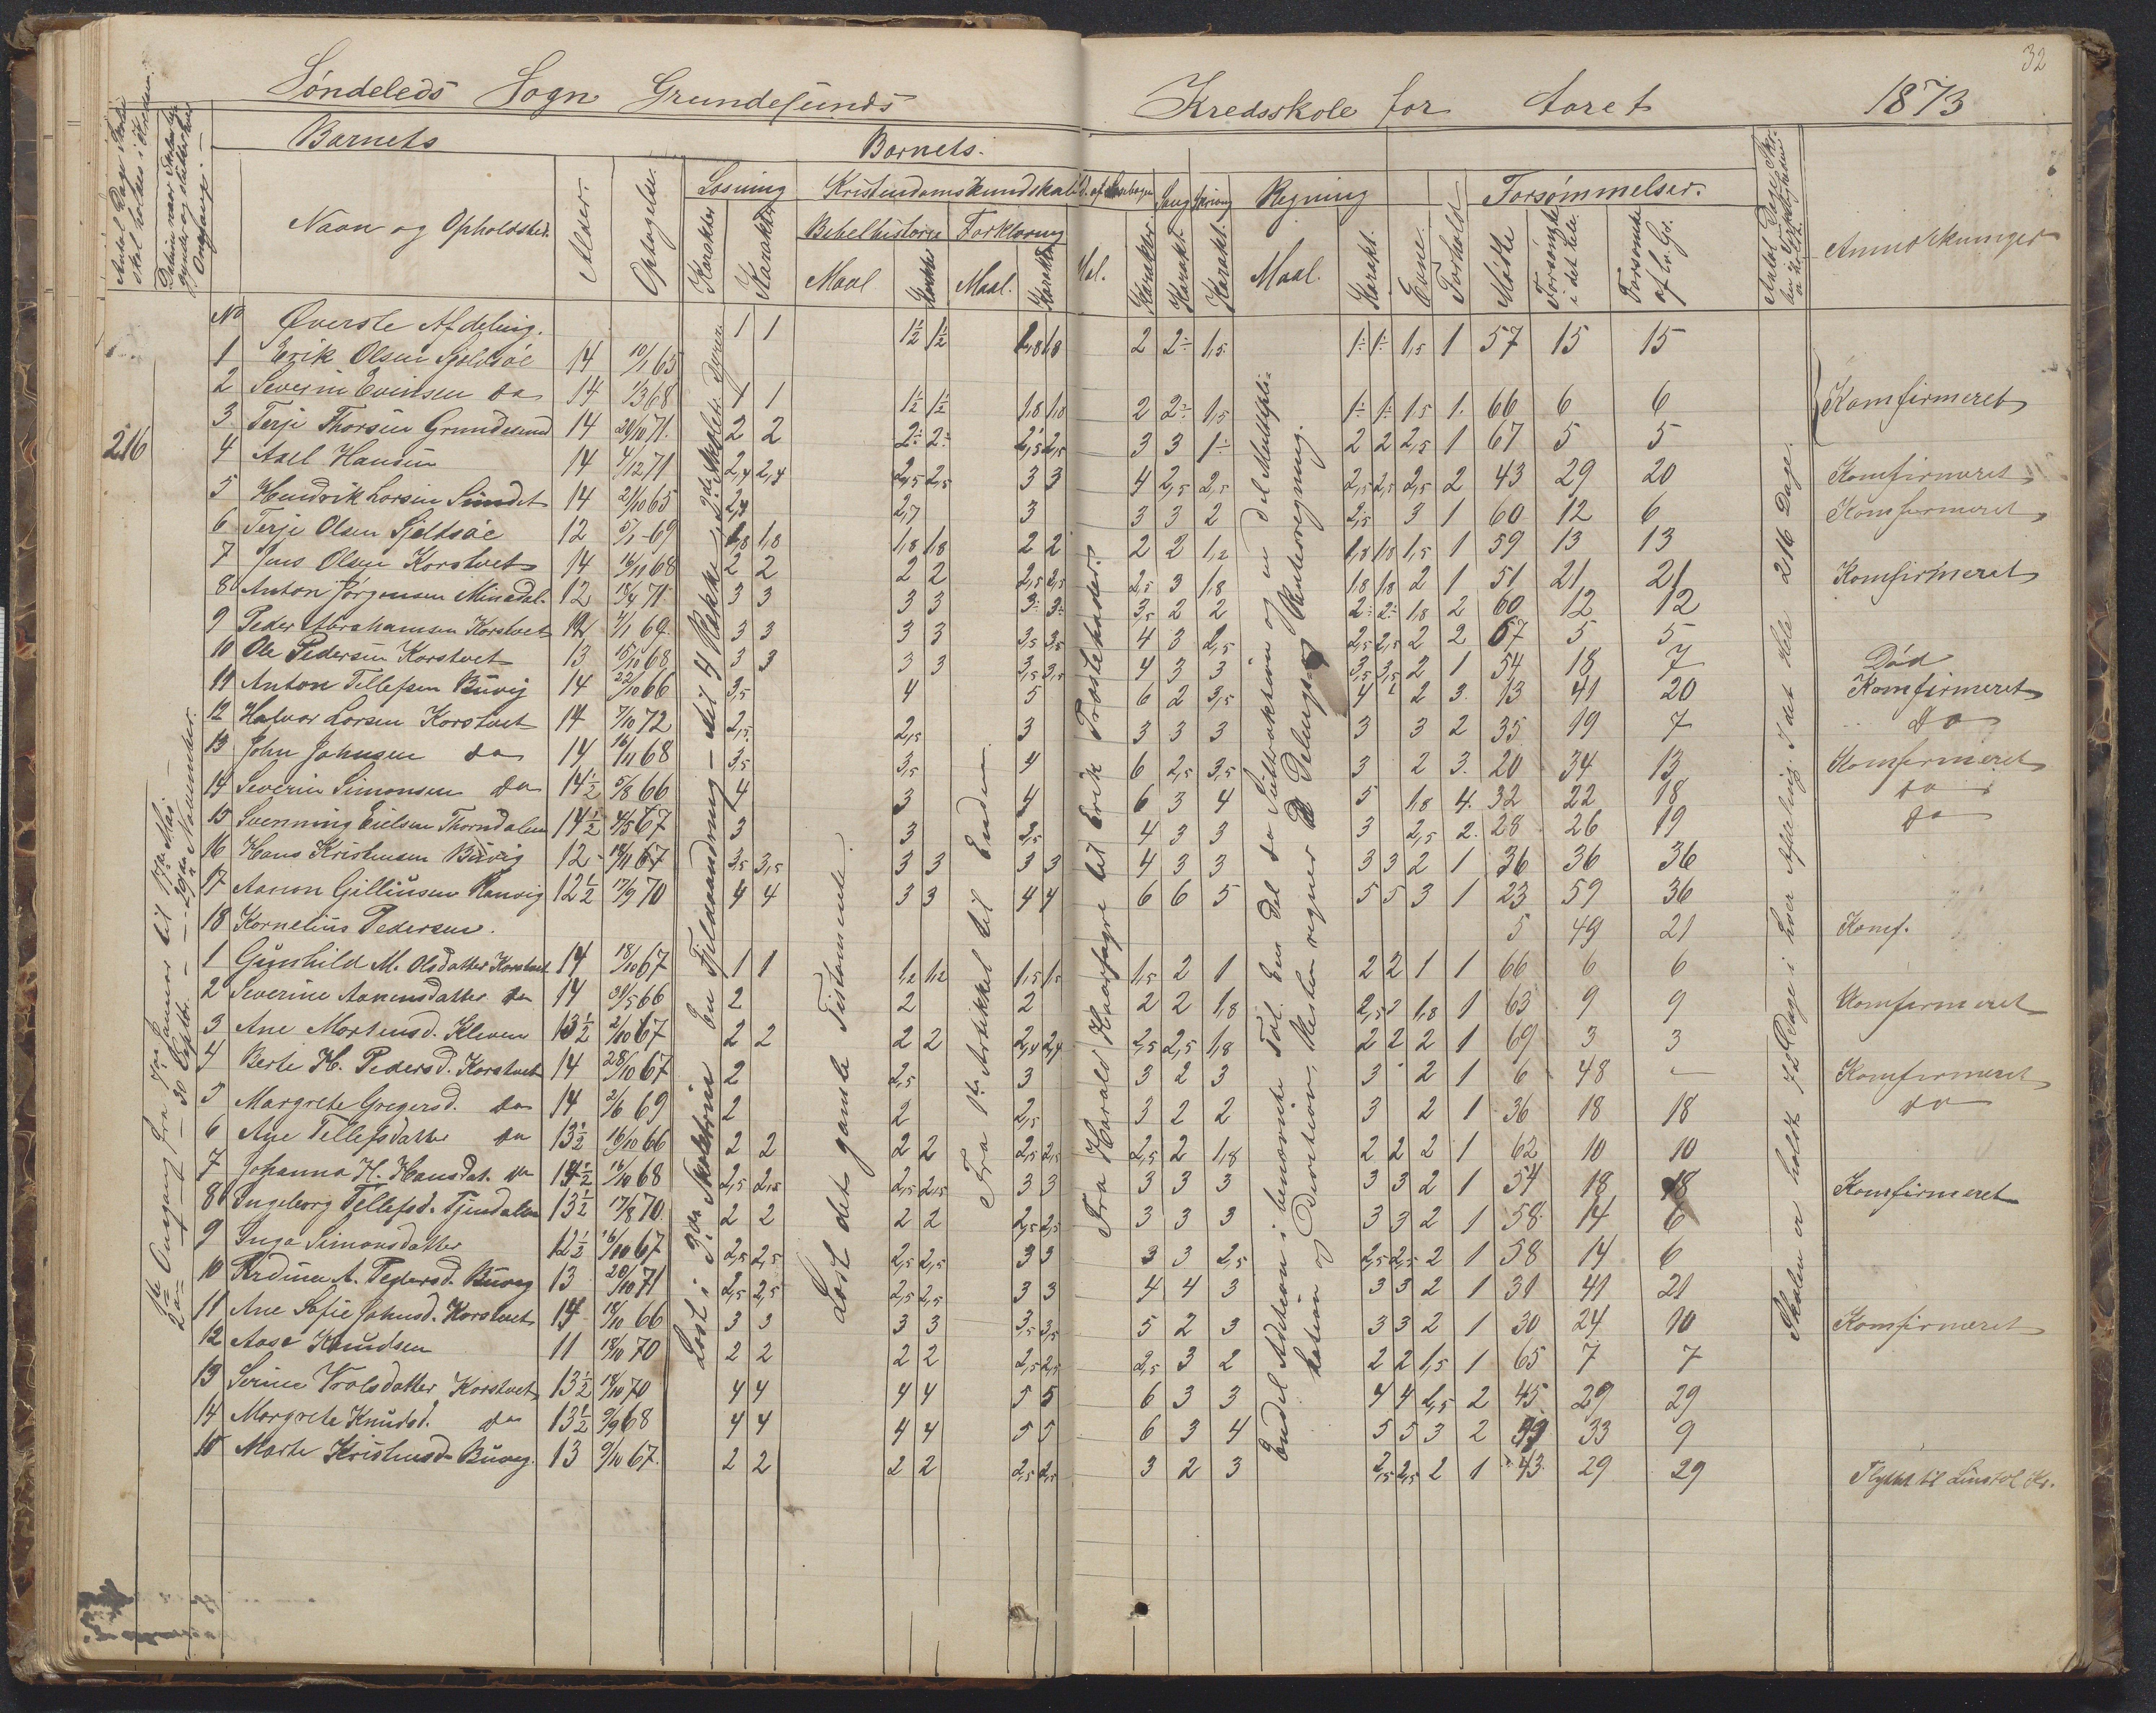 32
Søndeleds Sogn Grundesunds Kredsskole for Aaret 1873
Barnets Barnets.
Antal Dage Skolen skal holdes i Kredsen.
Datum naar Skolen begynder og slutter hver Omgang.
No
Navn og Opholdsted.
Alder.
Optagelse.
Læsning
Karakter
Karakter
Kristendomskundskab
Bibelhistorie Forklaring
Maal Karakter Maal. Karakter
Ud. af Læsebogen
Karakter.
Sang Karakt.
Skrivning Karakt.
Regning
Maal. Karakt.
Evne.
Forhold
Forsømmelser.
Mødte
Forsømte i det hele.
Forsømte af lo. Gr.
Anmærkninger
216
Øverste Afdeling.
1 Erik Olsen Sjeldsøe 14 10/1 65 1 1 1½ 1½ 1,8 1,8 2 2÷ 1,5 1÷ 1÷ 1,5 1 57 15 15
2 Severin Evensen do 14 1/3 68 1 1 1½ 1½ 1,8 1,8 2 2÷ 1,5 1÷ 1÷ 1,5 1. 66 6 6 Komfirmeret
3 Terje Thorsen Grundesund 14 20/10 71. 2 2 2÷ 2÷ 2,5 2,5 3 3 1÷ 2 2 2,5 1 67 5 5
4 Axel Hansen 14 4/12 71 2,4 2,4 2,5 2,5 3 3 4 2,5 2,5 2,5 2,5 2,5 2 43 29 20 Komfirmeret
5 Hendrik Larsen Sundet 14 2/10 65 2,3 2,7 3 3 3 2 2,5 3 1 60 12 6 Komfirmeret
6 Terje Olsen Sjeldsøe 12 5/1 69 1,8 1,8 1,8 1,8 2 2 2 2 1,2 1,8 1,8 1,5 1 59 13 13
7 Jens Olsen Korstvet 14 16/11 68 2 2 2 2 2,5 2,5 2,5 3 1,8 1,8 1,8 2 1 51 21 21 Komfirmeret
8 Anton Jørgensen Minedal. 12 18/4 71 3 3 3 3 3÷ 3÷ 3,5 2 2 2÷ 2÷ 1,8 2 60 12 12
9 Peder Abrahamsen Korstvet 12 4/1 69 3 3 3 3 3,5 3,5 4 3 2,5 2,5 2,5 2 2 67 5 5
10 Ole Pedersen Korstvet 13 15/10 68 3 3 3 3 3,5 3,5 4 3 3 3,5 3,5 2 1 54 18 7 Død
11 Anton Tellefsen Buvig 14 22/10 66 3,5 4 5 6 2 3,5 4 2 3. 13 41 20 Komfirmeret
12 Halvor Larsen Korstvet 14 7/10 72 2,5 2,5 3 3 3 3 3 3 2 35 19 7 do
13 John Johnsen do 14 16/11 68 3,5 3,5 4 6 2,5 3,5 3 2 3. 20 34 13 Komfirmeret
14 Severin Simonsen do 14½ 5/8 66 4 3 4 6 3 4 5 1,8 4. 32 22 18 do
15 Svenning Eielsen Thorndalen 14½ 4/5 67 3 3 2,5 4 3 3 3 2,5 2. 28 26 19 do
16 Hans Kristensen Buvig 12 18/11 67 3,5 3,5 3 3 3 3 4 3 3 3 3 2 1 36 36 36
17 Aanon Gilliusen Ranvig 12½ 17/9 70 4 4 3 3 4 4 6 6 5 5 5 3 1 23 59 36
18 Kornelius Pedersen. 5 49 21 Komf.
1 Gunhild M. Olsdatter Korstvet 14 18/10 67 1 1 1,2 1,2 1,5 1,5 1,5 2 1 2 2 1 1 66 6 6
2 Severine Aanensdatter do 14 31/5 66 2 2 2 2 2 1,8 2,5 1,8 1 63 9 9 Komfirmeret
3 Ane Mortensd. Kleven 13½ 2/10 67 2 2 2 2 2,4 2,4 2,5 2,5 1,8 2 2 2 1 69 3 3
4 Berte H. Pedersd. Korstvet 14 28/10 67 2 2,5 3 3 2 3 3 2 1 6 48 — Komfirmeret
5 Margrete Gregersd. do 14 2/6 69 2 2 2,5 3 2 2 3 2 1 36 18 18 do
6 Ane Tellefsdatter do 13½ 16/10 66 2 2 2 2 2,5 2,5 2,5 2 1,8 2 2 2 1 62 10 10
7 Johanna H. Hansdat. do 14½ 16/10 68 2,5 2,5 2,5 2,5 3 3 3 3 3 3 3 2 1 54 18 18 Komfirmeret
8 Ingeborg Tellefsd. Tjendalen 13½ 17/8 70. 2 2 2 2 2,5 2,5 3 3 3 3 3 2 1 58 14 6
9 Inga Simonsdatter 12½ 16/10 67 2,5 2,5 2,5 2,5 3 3 3 3 2,5 2,5 2,5 2 1 58 14 6
10 Ardine A. Pedersd. Buvig 13 20/10 71 2,5 2,5 2,5 2,5 3 3 4 4 3 3 3 2 1 31 41 21
11 Ane Sofie Johnsd. Korstvet 14 18/10 66 3 3 3 3 3,5 3,5 5 2 3 3 3 2 1 30 24 10 Komfirmeret
12 Aase Knudsen 11 18/10 70 2 2 2 2 2,5 2,5 2,5 3 2 2 2 1,5 1 65 7 7
13 Serine Trolsdatter Korstvet 13½ 18/10 70 4 4 4 4 5 5 6 3 3 4 4 2,5 2 45 29 29
14 Margrete Knudsd. do 13½ 9/9 68 4 4 4 4 5 5 6 3 4 5 5 3 2 39 33 9
15 Marte Kristensd. Buvig. 13 9/10 67. 2 2 2 2 2,5 2,5 3 2 3 2,5 2,5 2 1 43 29 29 Flyttet til Kr.
1ste Omgang fra 7de Januar til 17de Mai
2den — 30 Septbr. — 29de November.
Læst i 3die Skoletrin En Fjeldvandring — til
Læst det gamle Testamente.
Fra 1ste Artikkel til Enden
Fra Harald Haarfagre til Erik Præstehader.
Endel Adition i benævnte Tal. En Del do Subtraktion og en del Multiplikation og Division, Resten regner Delings og Renteregning.
Skolen er holdt 72 Dage i hver Afdeling. I det Hele 216 Dage.